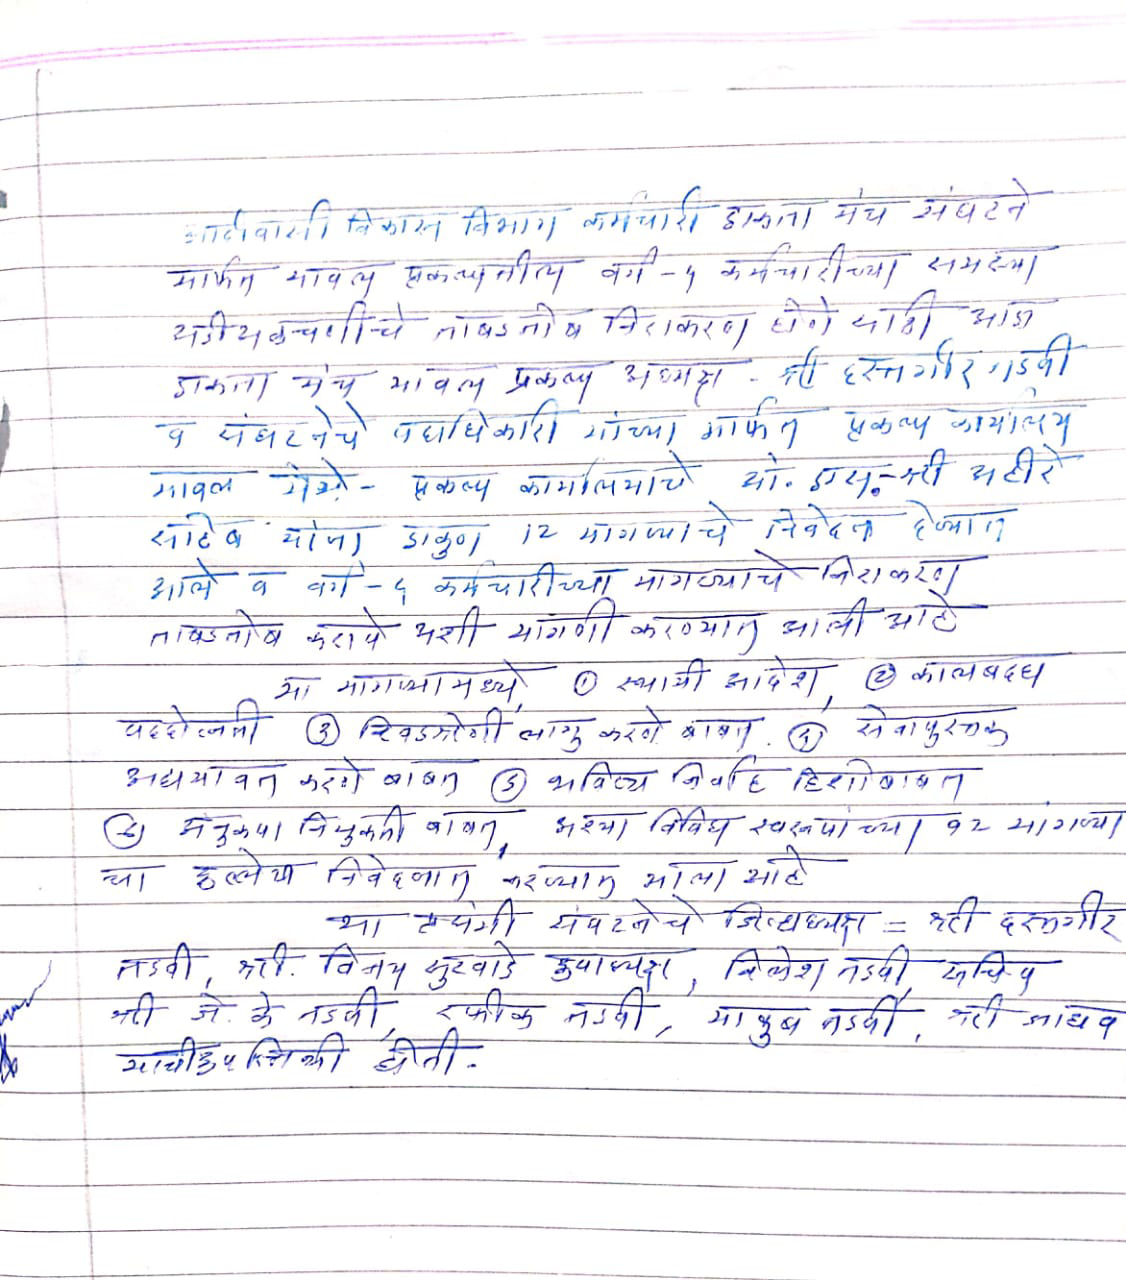 आदीवासी विकास विभाग कर्मचारी एकता मंच संघटने
मार्फत यावल प्रकल्पातील वर्ग-४ कर्मचारीच्या समस्या
अडीअडचणींचे ताबडतोब निराकरण होणे साठी आज
एकता मंच यावल प्रकल्प अध्यक्ष - श्री दस्तगीर तडवी
व संघटनेचे पदाधिकारी यांच्या मार्फत प्रकल्प कार्यालय
यावल येथे - प्रकल्प कार्यालयाचे श्री अहीरे
साहेब यांना एकुण १२ मागण्याचे निवेदन देण्यात
आले व वर्ग-४ कर्मचारीच्या मागण्याचे निराकरण
ताबडतोब करावे अशी मागणी करण्यात आली आहे
या मागण्यामध्ये, ① स्थायी आदेश, ② कालबदध
पददोन्नती ③ लागु करणे बाबत. ④ सेवापुस्तक
अदययावत करणे बाबत ⑤ भविष्य निर्वाह हिशोबाबत
⑥ अनुकंपा नियुक्ती बाबत, अश्या विविध स्वरूपांच्या १२ मागण्या
चा उल्लेख निवेदनात करण्यात आला आहे
या प्रसंगी संघटनेचे जिल्हाध्यक्ष = श्री दस्तगीर
तडवी, श्री. विजय सुरवाडे उपाध्यक्ष, निलेश तडवी, सचिव
श्री जे. के तडवी, रफीक तडवी, याकुब तडवी, श्री आढाव
यांची उपस्थिती होती.